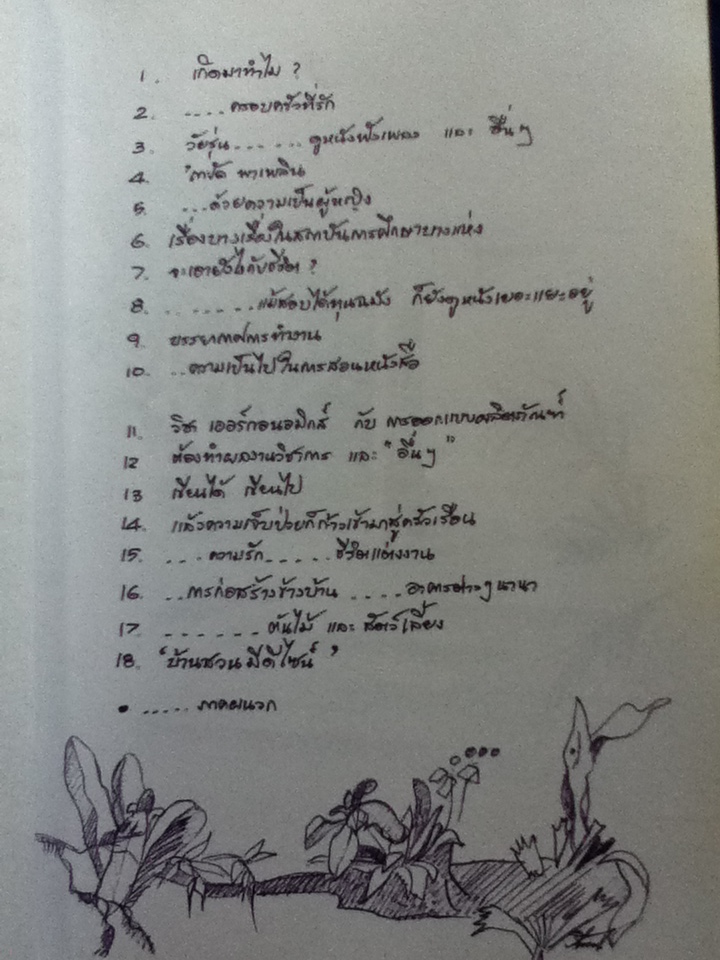 1. เกิดมาทำไม ?
2. ....ครอบครัวที่รัก
3. วัยรุ่น.......ดูหนังฟังเพลง และ อื่นๆ
4. พาเพลิน
5. ...ด้วยความเป็นผู้หญิง
6. เรื่องบางเรื่องในสถาบันการศึกษาบางแห่ง
7. จะเอายังไงกับชีวิต ?
8. ........แม้สอบได้ทุนฉมัง ก็ยังดูหนังเยอะแยะอยู่
9. บรรยากาศการทำงาน
10. ..ความเป็นไปในการสอนหนังสือ
11. วิชา เออร์กอนอมิกส์ กับ การออกแบบผลิตภัณฑ์
12 ห้องทำผลงานวิชาการ และ "อื่นๆ"
13 เขียนได้ เขียนไป
14. แล้วความเจ็บป่วยก็ก้าวเข้ามาสู่ครัวเรือน
15. ...ความรัก.....ชีวิตแต่งงาน
16. ..การก่อสร้างข้างบ้าน ....อาคารต่างๆนานา
17. .......ต้นไม้ และ สัตว์เลี้ยง
18. 'บ้านสวน มีดีไซน์'
• ..... ภาคผนวก